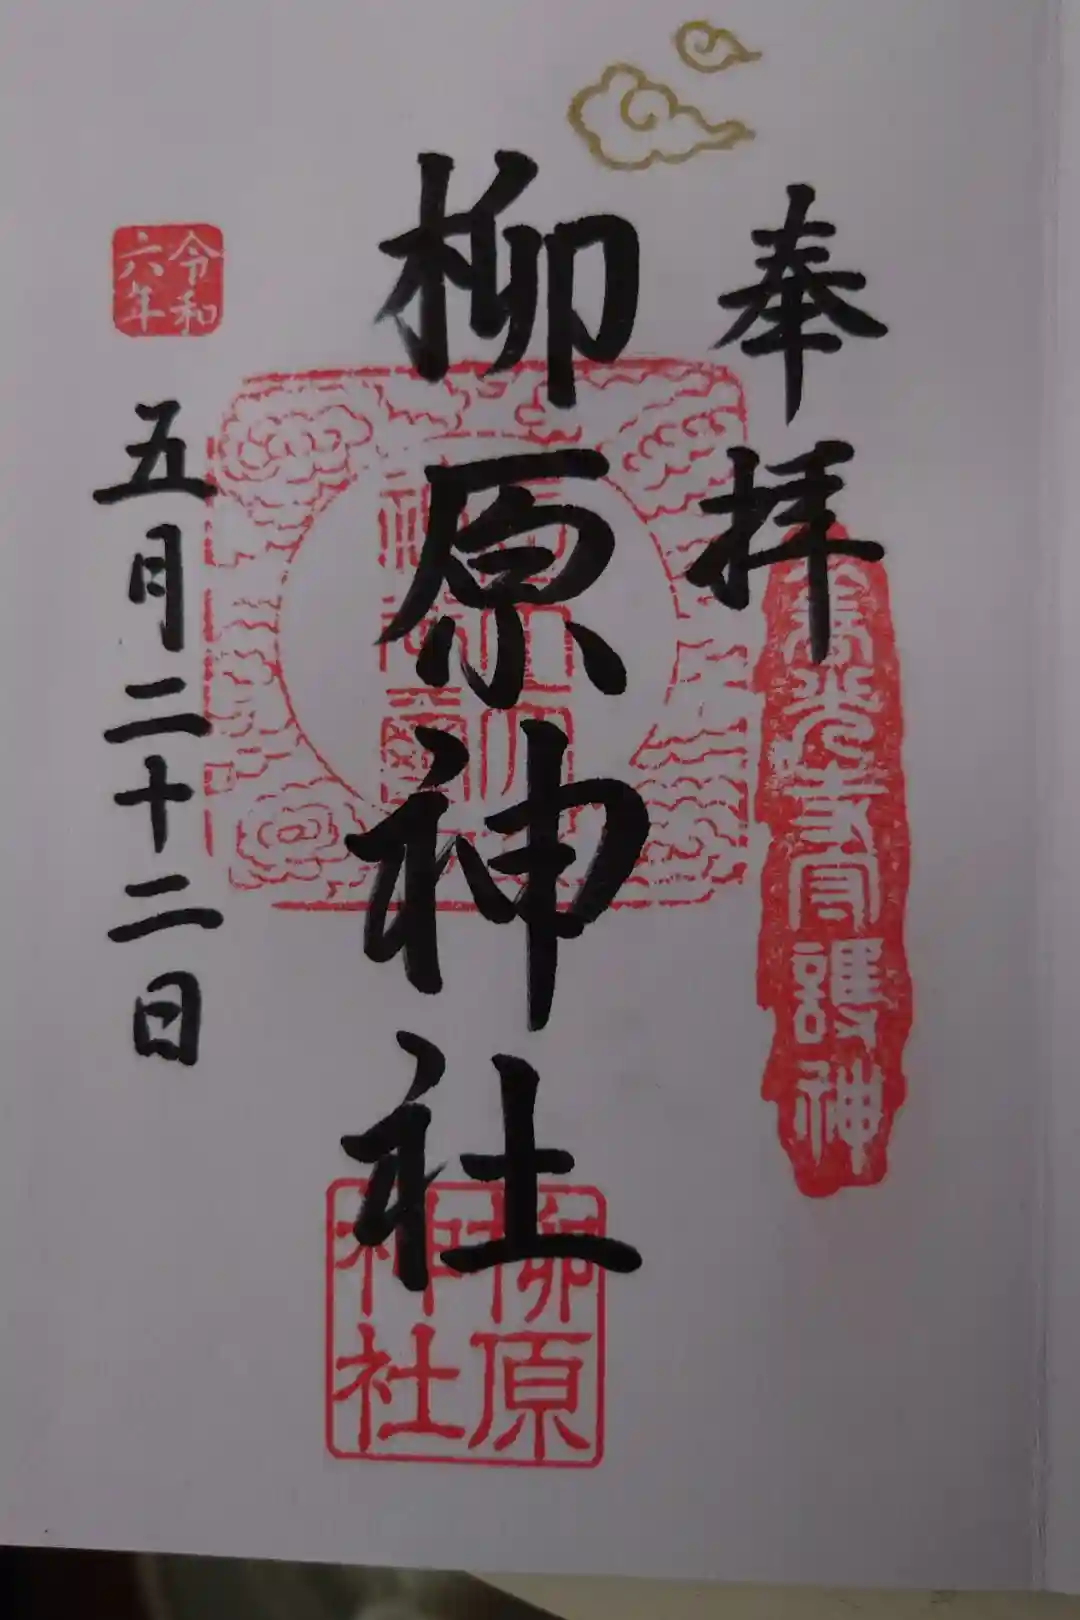 奉拝
善光寺守護神
柳原神社
柳原
神社
令和
六年
五月二十二日